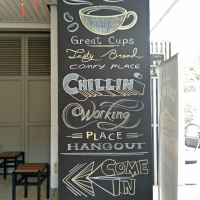 Great Cups
Tasty Bread
COMFY PLACE
CHILLIN'
Working
PLACE
HANGOUT
COME
IN